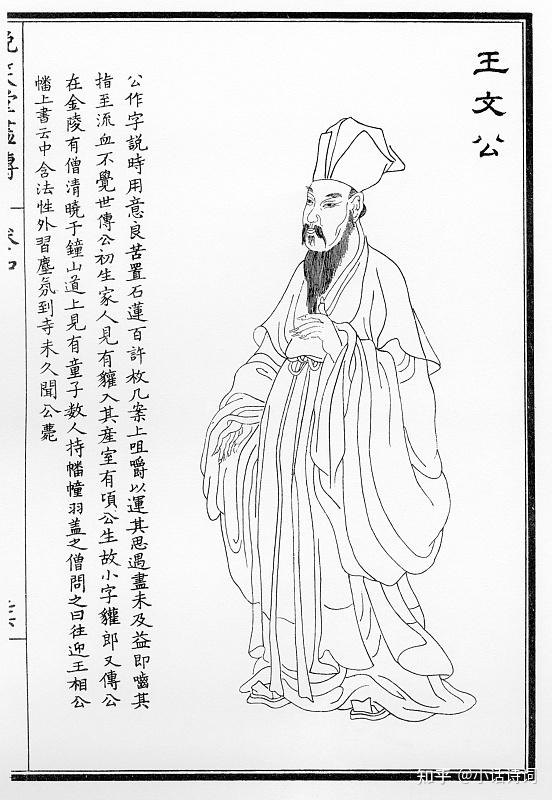 王文公
公作字説時用意良苦置石蓮百許枚几案上咀嚼以運其思遇盡未及益即嚙其
指至流血不覺世傳公初生家人見有貛入其產室有頃公生故小字貛郎又傳公
在金陵有僧清曉于鐘山道上見有童子数人持幡幢羽盖之僧問之曰往迎王相公
幡上書云中含法性外習塵氛到寺未久聞公薨
知乎 @小话诗词